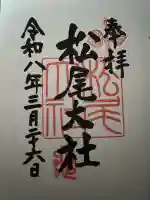 奉拝
松尾大社
令和八年三月二十六日